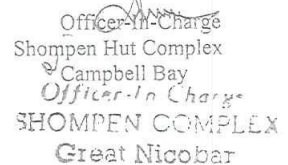 Officer-In-Charge
Shompen Hut Complex
Campbell Bay
Officer-In Charge
SHOMPEN COMPLEX
Great Nicobar